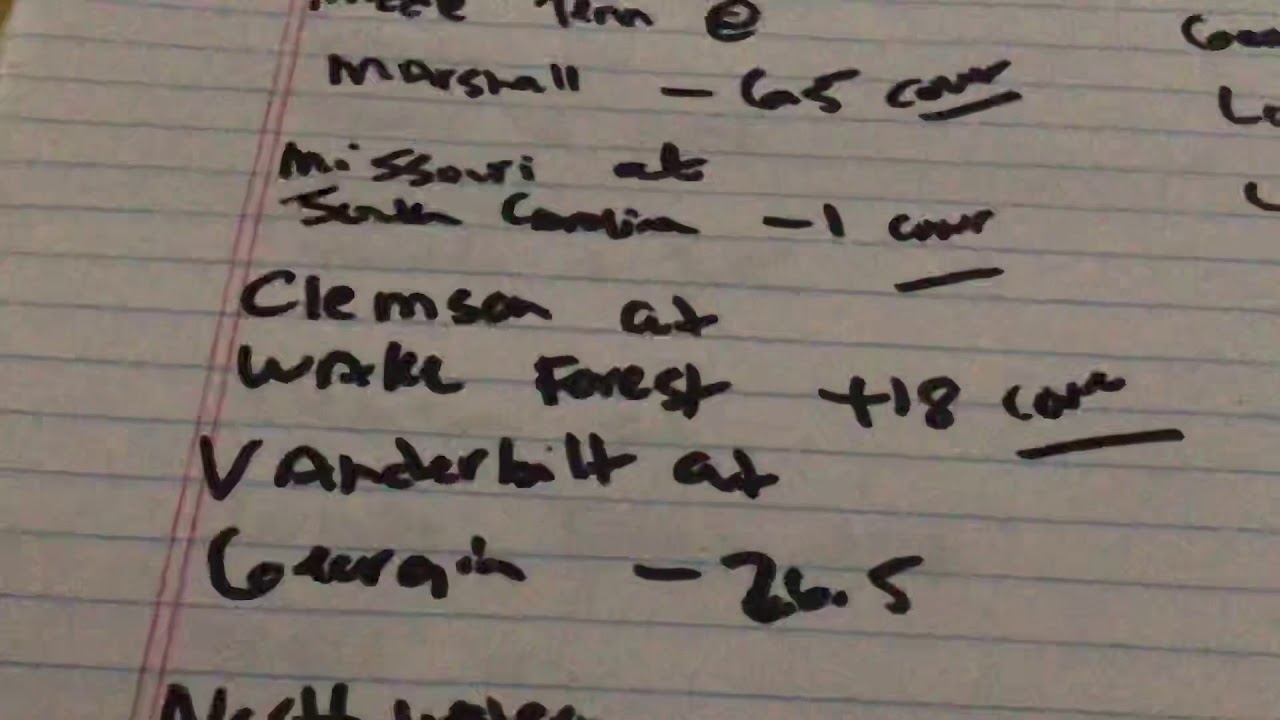 Middle Tenn @
Marshall - 6.5 cover
Missouri at
South Carolina -1 cover
Clemson at
WAKE Forest +18 cover
VAnderbilt at
Georgia -26.5